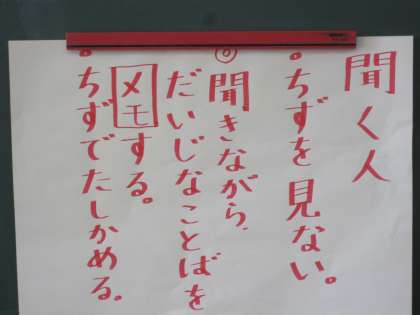 聞く人
・ちずを見ない。
◎聞きながら、
だいじなことばを
メモする。
・ちずでたしかめる。